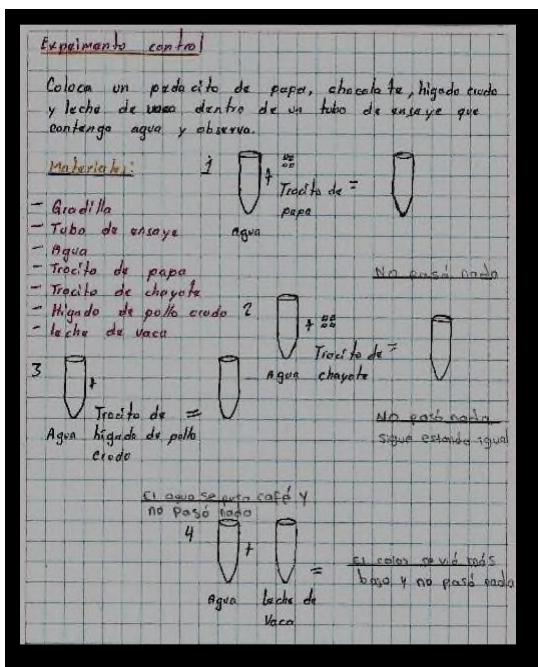 Expeimento control
Coloca un pedacito de papa, chocolate, higado crudo
y leche de vaca dentro de un tubo de ensaye que
contenga agua y observa.
Materiales:
- Gradilla
- Tubo de ensaye
- Agua
- Trocito de papa
- Trocito de chayote
- Higado de pollo crudo
- leche de vaca
1
+
Trocito de =
papa
Agua
No pasó nada
2
+
Trocito de =
Agua chayote
No pasó nada
sigue estando igual
3
+
Trocito de =
Agua higado de pollo
crudo
El agua se puso café y
no pasó nada
4
+
=
Agua leche de
Vaca
El color se vió más
bajo y no pasó nada